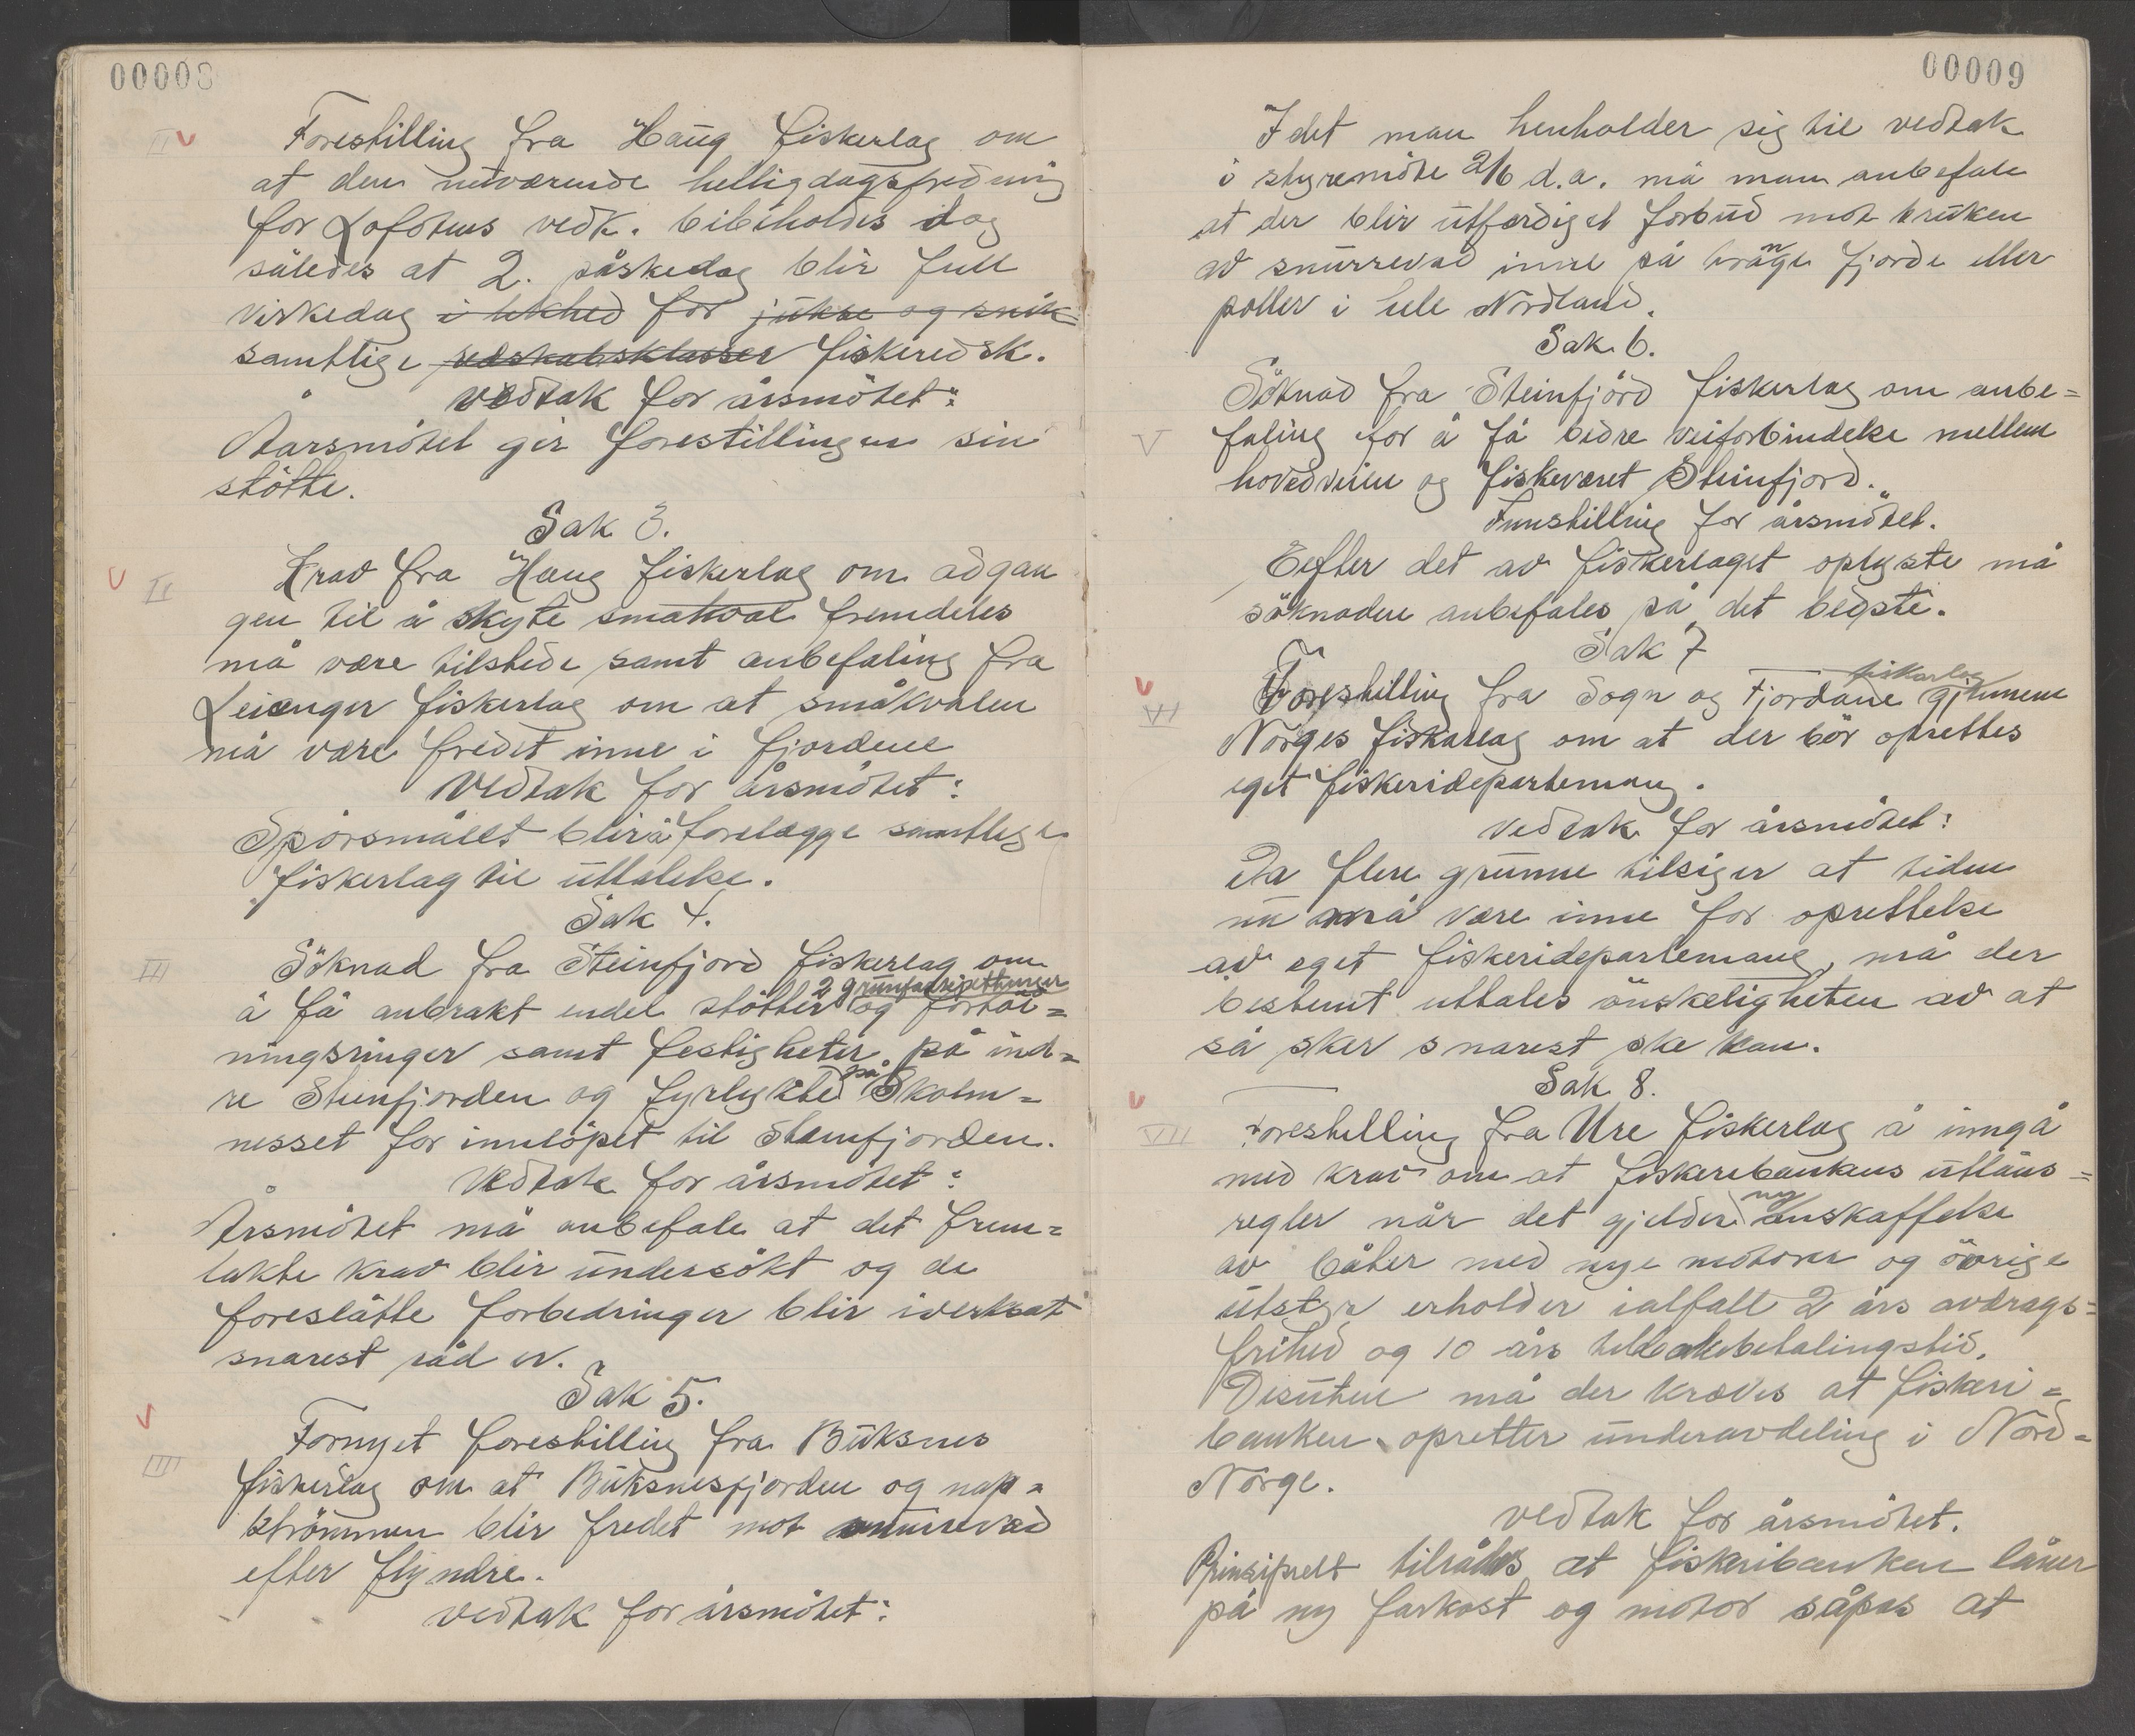 00008
II V
Forestilling fra Haug fiskerlag om
at den nuværende helligdagsfredning
for Lofotens vedk. bibeholdes dog
således at 2. påskedag blir full
virkedag i likhed for jukse og snik=
samtlige redskabsklasser fiskeredsk.
Vedtak for årsmötet:
Aarsmötet gir forestillingen sin
stötte.
Sak 3.
V II
Krav fra Haug fiskerlag om adgan
gen til å skyte småhval fremdeles
må være tilstede samt anbefaling fra
Leianger fiskerlag om at småkvalen
må være fredet inne i fjordene
Vedtak for årsmötet:
Spörsmålet blir å forelægge samtlige
fiskerlag til uttalelse.
Sak 4.
III
Söknad fra Steinfjord fiskerlag om
2
å få anbrakt endel stötter og fortöi=
ningsringer samt festigheter på ind=
re Steinfjorden og fyrlykte på Skolm=
nesset for innlöpet til Steinfjorden.
Vedtak for årsmötet:
Årsmötet må anbefale at det frem=
lakte krav blir undersökt og de
foreslåtte forbedringer blir iverksat
snarest råd er.
Sak 5.
V IIII
Fornyet forestilling fra Buksnes
fiskerlag om at Buksnesfjorden og nap=
strömmen blir fredet mot snurrevad
efter flyndre.
Vedtak for årsmötet:
00009
Idet man henholder sig til vedtak
i styremöte 2/6 d.a. må man anbefale
at der blir utfærdiget forbud mot bruken
av snurrevad inne på trånge fjorde eller
poller i hele Nordland.
Sak 6.
V
Söknad fra Steinfjord fiskerlag om anbe=
faling for å få bedre veiforbindelse mellem
hovedveien og fiskeværet Steinfjord.
Innstilling for årsmötet.
Eefter det av fiskerlaget oplyste må
söknaden anbefales på det bedste.
Sak 7
V VI
Forestilling fra Sogn og Fjordane fiskarlag gjennem
Norges fiskarlag om at der bör oprettes
eget fiskeridepartemang.
Vedtak for årsmötet:
Da flere grunne tilsiger at tiden
nu må være inne for oprettelse
av eget fiskeridepartemang, må der
bestemt uttales önskeligheten av at
så sker snarest ske kan.
Sak 8.
V VII
Forestilling fra Ure fiskerlag å inngå
med krav om at fiskeribankens utlåns=
regler når det gjelder ny anskaffelse
av båter med nye motorer og övrige
utstyr erholder ialfall 2 års avdrags=
frihed og 10 års tilbakebetalingstid.
Desuten må der kræves at fiskeri=
banken opretter underavdeling i Nord=
Norge.
Vedtak for årsmötet.
Prinsipielt tilrådes at fiskeribanken låner
på ny farkost og motor såpas at